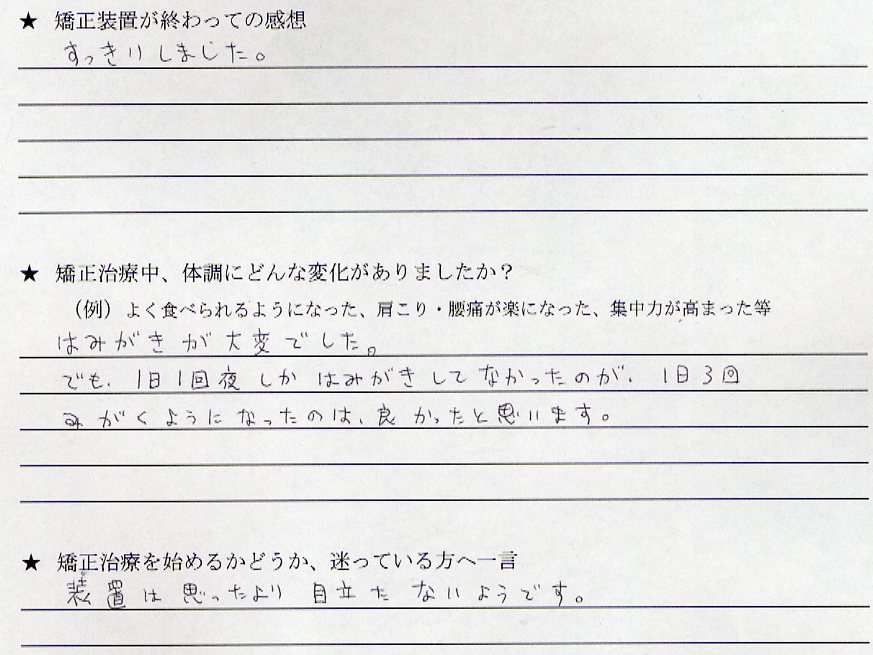 ★ 矯正装置が終わっての感想
すっきりしました。
★ 矯正治療中、体調にどんな変化がありましたか？
（例）よく食べられるようになった、肩こり・腰痛が楽になった、集中力が高まった等
はみがきが大変でした。
でも、1日1回夜しかはみがきしてなかったのが、1日3回
みがくようになったのは、良かったと思います。
★ 矯正治療を始めるかどうか、迷っている方へ一言
装置は思ったより目立たないようです。